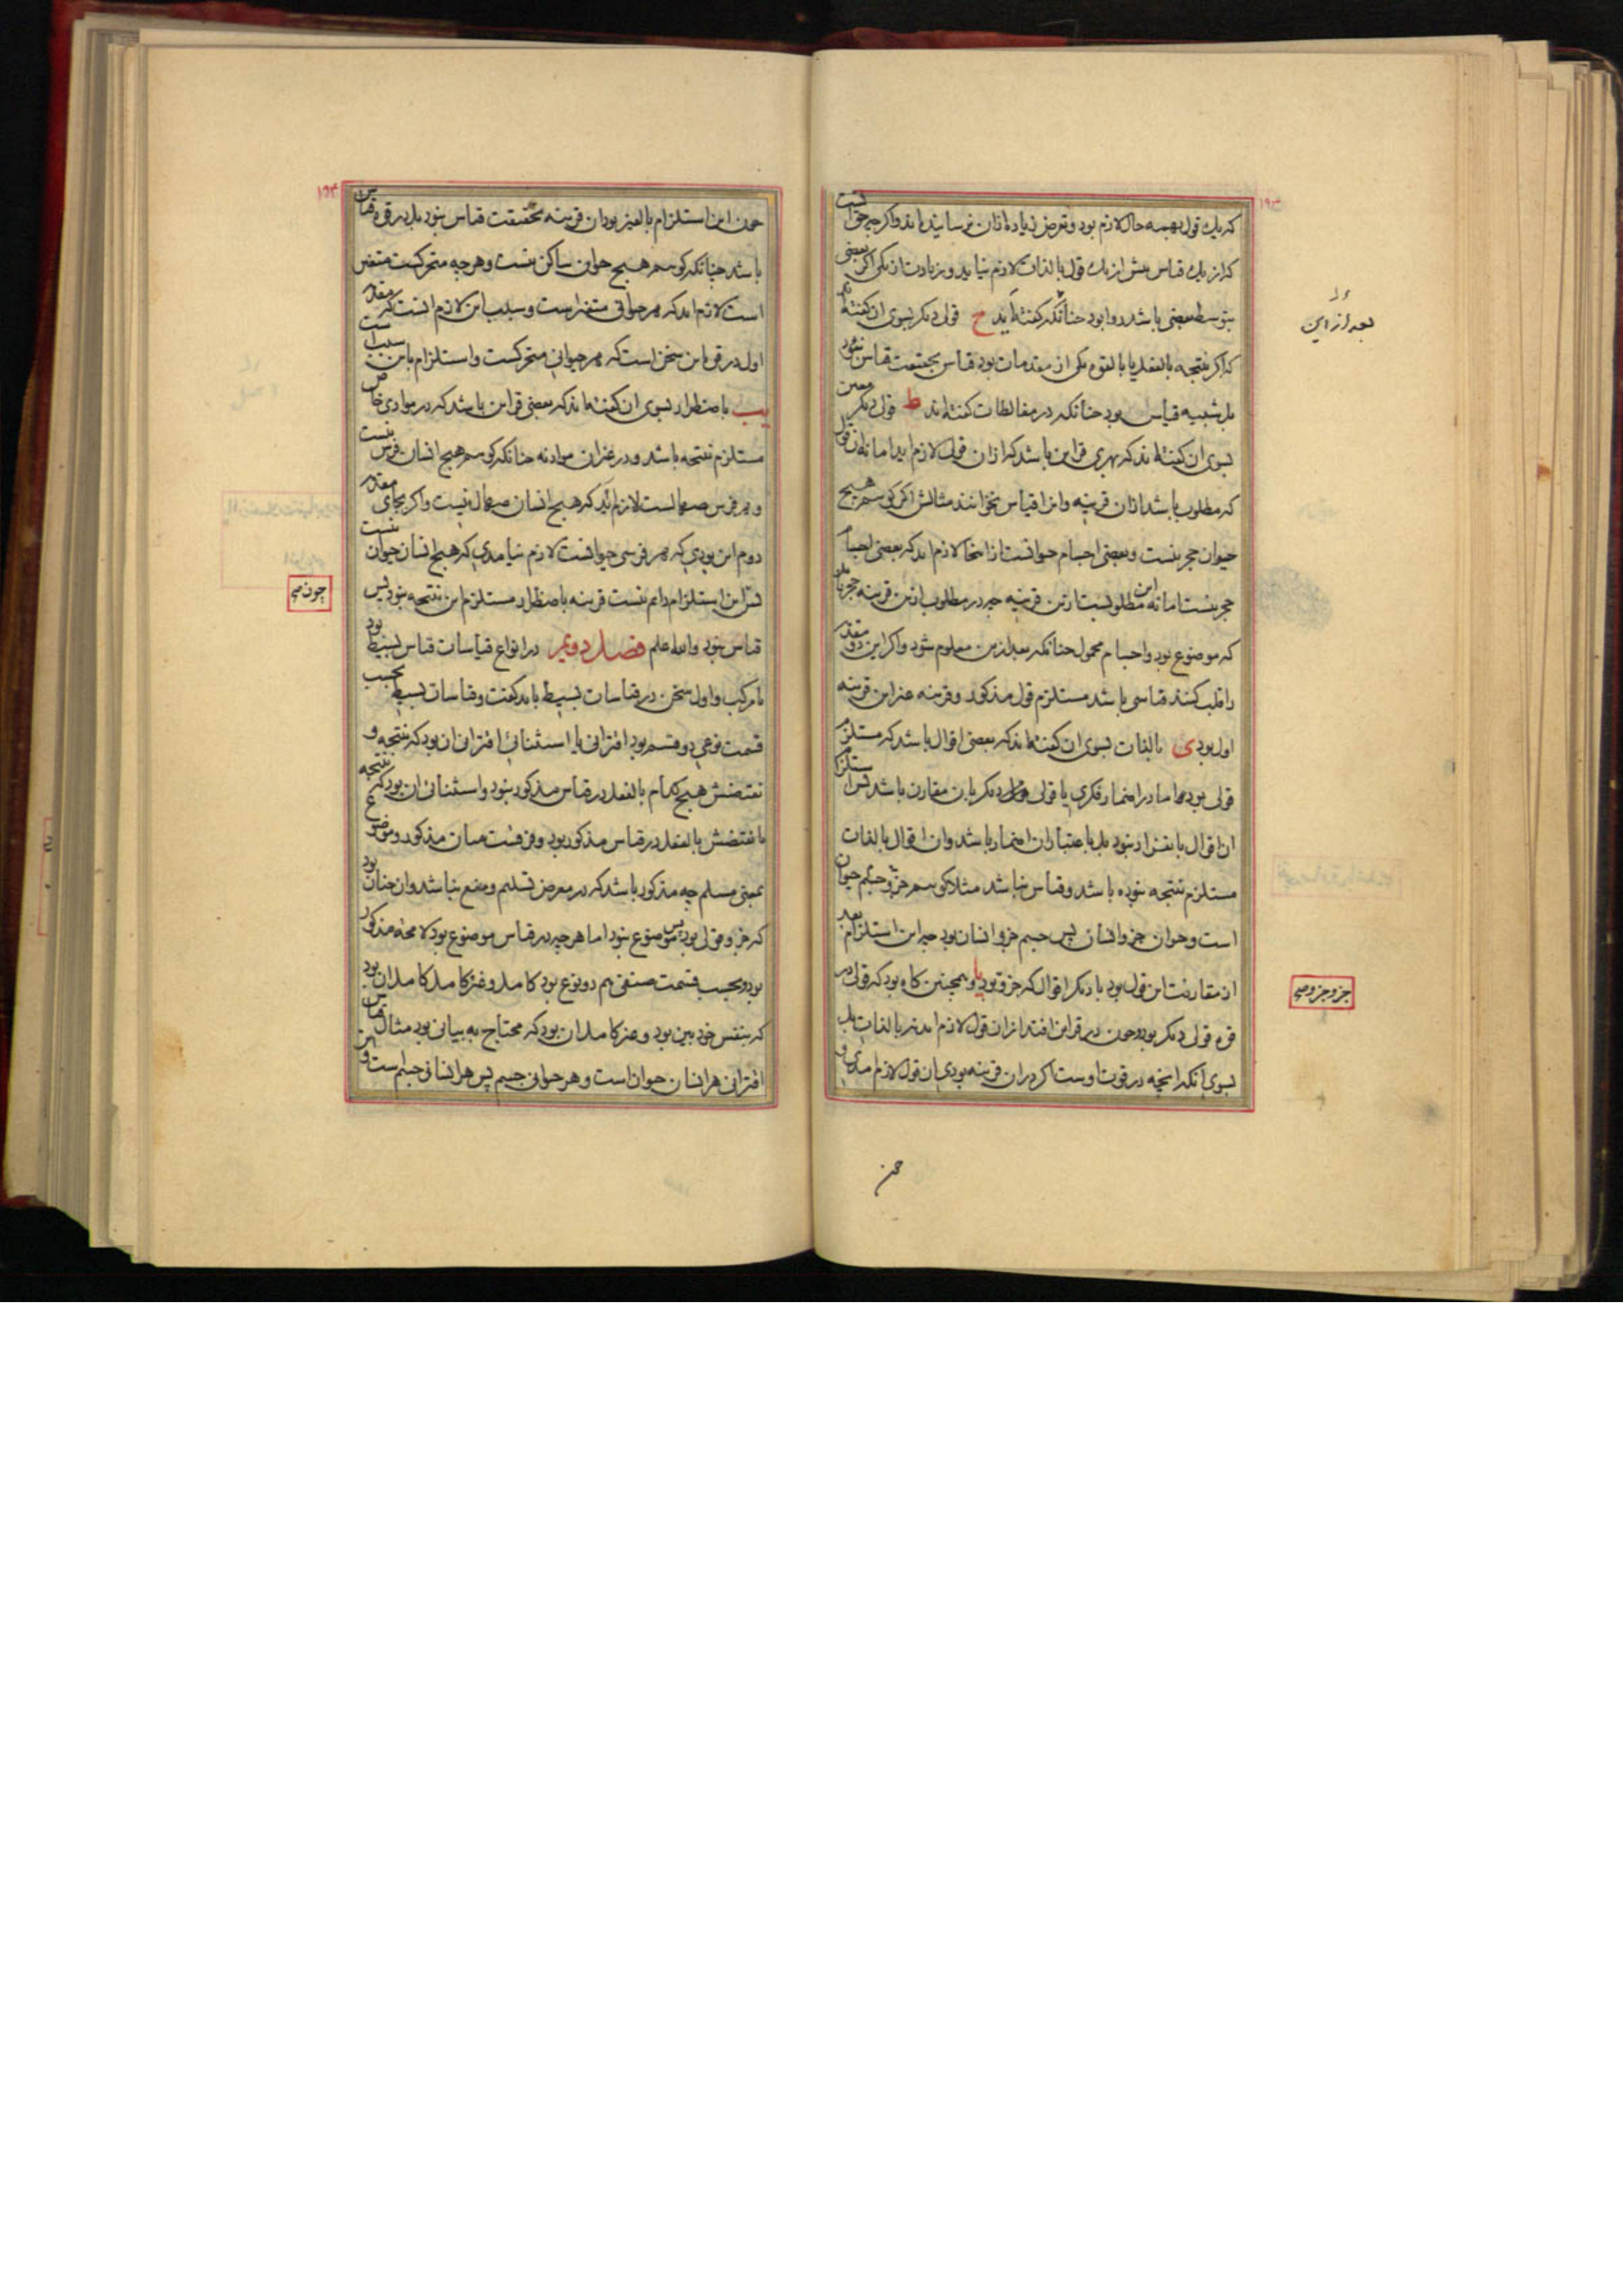 ۱۹۳
که یک قول بهمه حال لازم بود و تعرض زیاده ازان نرسانیده اند و اگر چه حق آنست
که از یک قیاس بیش از یک قول بالذات لازم نیاید و زیادت از یکی اگر بعضی
بتوسط بعضی باشد روا بود چنانکه گفته اید ح قول دیگر بسوی آن گفته اند
که اگر نتیجه بالفعل یا بالقوه یکی از مقدمات بود قیاس بحقیقت قیاس نبود
بل شبیه قیاس بود چنانکه در مغالطات گفته اند ط قول دیگر معین
بسوی آن گفته اند که بهری قراین باشد که ازان قولی لازم آید اما نه آن قول
که مطلوب باشد ازان قرینه و انرا قیاس نخوانند مثالش اگر گوییم هیچ
حیوان حجر نیست و بعضی اجسام حیوانست ازانجا لازم اید که بعضی اجسام
حجر نیست اما نه این مطلوبست ازین قرینه چه در مطلوب ازین قرینه حجر باید
که موضوع بود و اجسام محمول چنانکه بعد ازین معلوم شود و اگر این دو مقدمه
را قلب کنند قیاسی باشد مستلزم قول مذکور و قرینه غیر این قرینه
اول بود ی بالذات بسوی آن گفته اند که بعضی اقوال باشد که مستلزم
قولی بود اما در اضمار فکری یا قولی دیگر بآن مقارن باشد پس استلزام
ان اقوال بانفراد نبود بل باعتبار ان اضمار باشد و ان اقوال بالذات
مستلزم نتیجه نبوده باشد و قیاس نباشد مثلا گوییم جزو جسم حیوان
است و حیوان جزو انسان پس جسم جزو انسان بود چه این استلزام بعد
از مقارنت این قول بود با دیگر اقوال که جزو جزو بود یا و همچنین گاه بود که قولی در
قوه قولی دیگر بود و چون در قراین افتد ازان قول لازم اید نه بالذات بل
بسوی آنکه انچه در قوت اوست اگر در ان قرینه بودی ان قول لازم امدی و
بعد از این
جزو جزو صح
چون
۱۹۴
چون این استلزام بالغیر بود ان قرینه بحقیقت قیاس نبود بل در قوه قیاس
باشد چنانکه گوییم هیچ حیوان ساکن نیست و هر چه متحرکست متغیر
است لازم اید که هر حیوانی متغیرست و سبب این لازم انست که مقدمه
اول در قوه این سخن است که هر حیوانی متحرکست و استلزام باین سبب است
یب باضطرار بسوی آن گفته اند که بعضی قراین باشد که در موادی خاص
مستلزم نتیجه باشد و در غیر ان مواد نه چنانکه گوییم هیچ انسان فرس نیست
و هر فرس صهالست لازم آید که هیچ انسان صهال نیست و اگر بجای مقدمه
دوم این بودی که هر فرسی حیوانست لازم نیامدی که هیچ انسان حیوان نیست
پس این استلزام دایم نیست قرینه باضطرار مستلزم این نتیجه نبود پس
قیاس نبود والله اعلم فصل دویم در انواع قیاسات قیاس بسیط بود
یا مرکب و اول سخن در قیاسات بسیط باید گفت و قیاسات بسیط بحسب
قسمت نوعی دو قسم بود اقترانی یا استثنائی اقترانی ان بود که نتیجه و
نقیضش هیچکدام بالفعل در قیاس مذکور نبود و استثنائی ان بود که نتیجه
یا نقیضش بالفعل در قیاس مذکور بود و فرقست میان مذکور و موضوع
بمعنی مسلم چه مذکور باشد که در معرض تسلیم و منع نباشد و ان چنان بود
که جزو قولی بود پس موضوع نبود اما هر چه در قیاس موضوع بود لا محاله مذکور
بود و بحسب قسمت صنفی هم دو نوع بود کامل و غیر کامل کامل ان بود
که بنفس خود بین بود و غیر کامل ان بود که محتاج به بیانی بود مثال قیاس
اقترانی هر انسان حیوان است و هر حیوانی جسم پس هر انسانی جسم است و این
چون صح